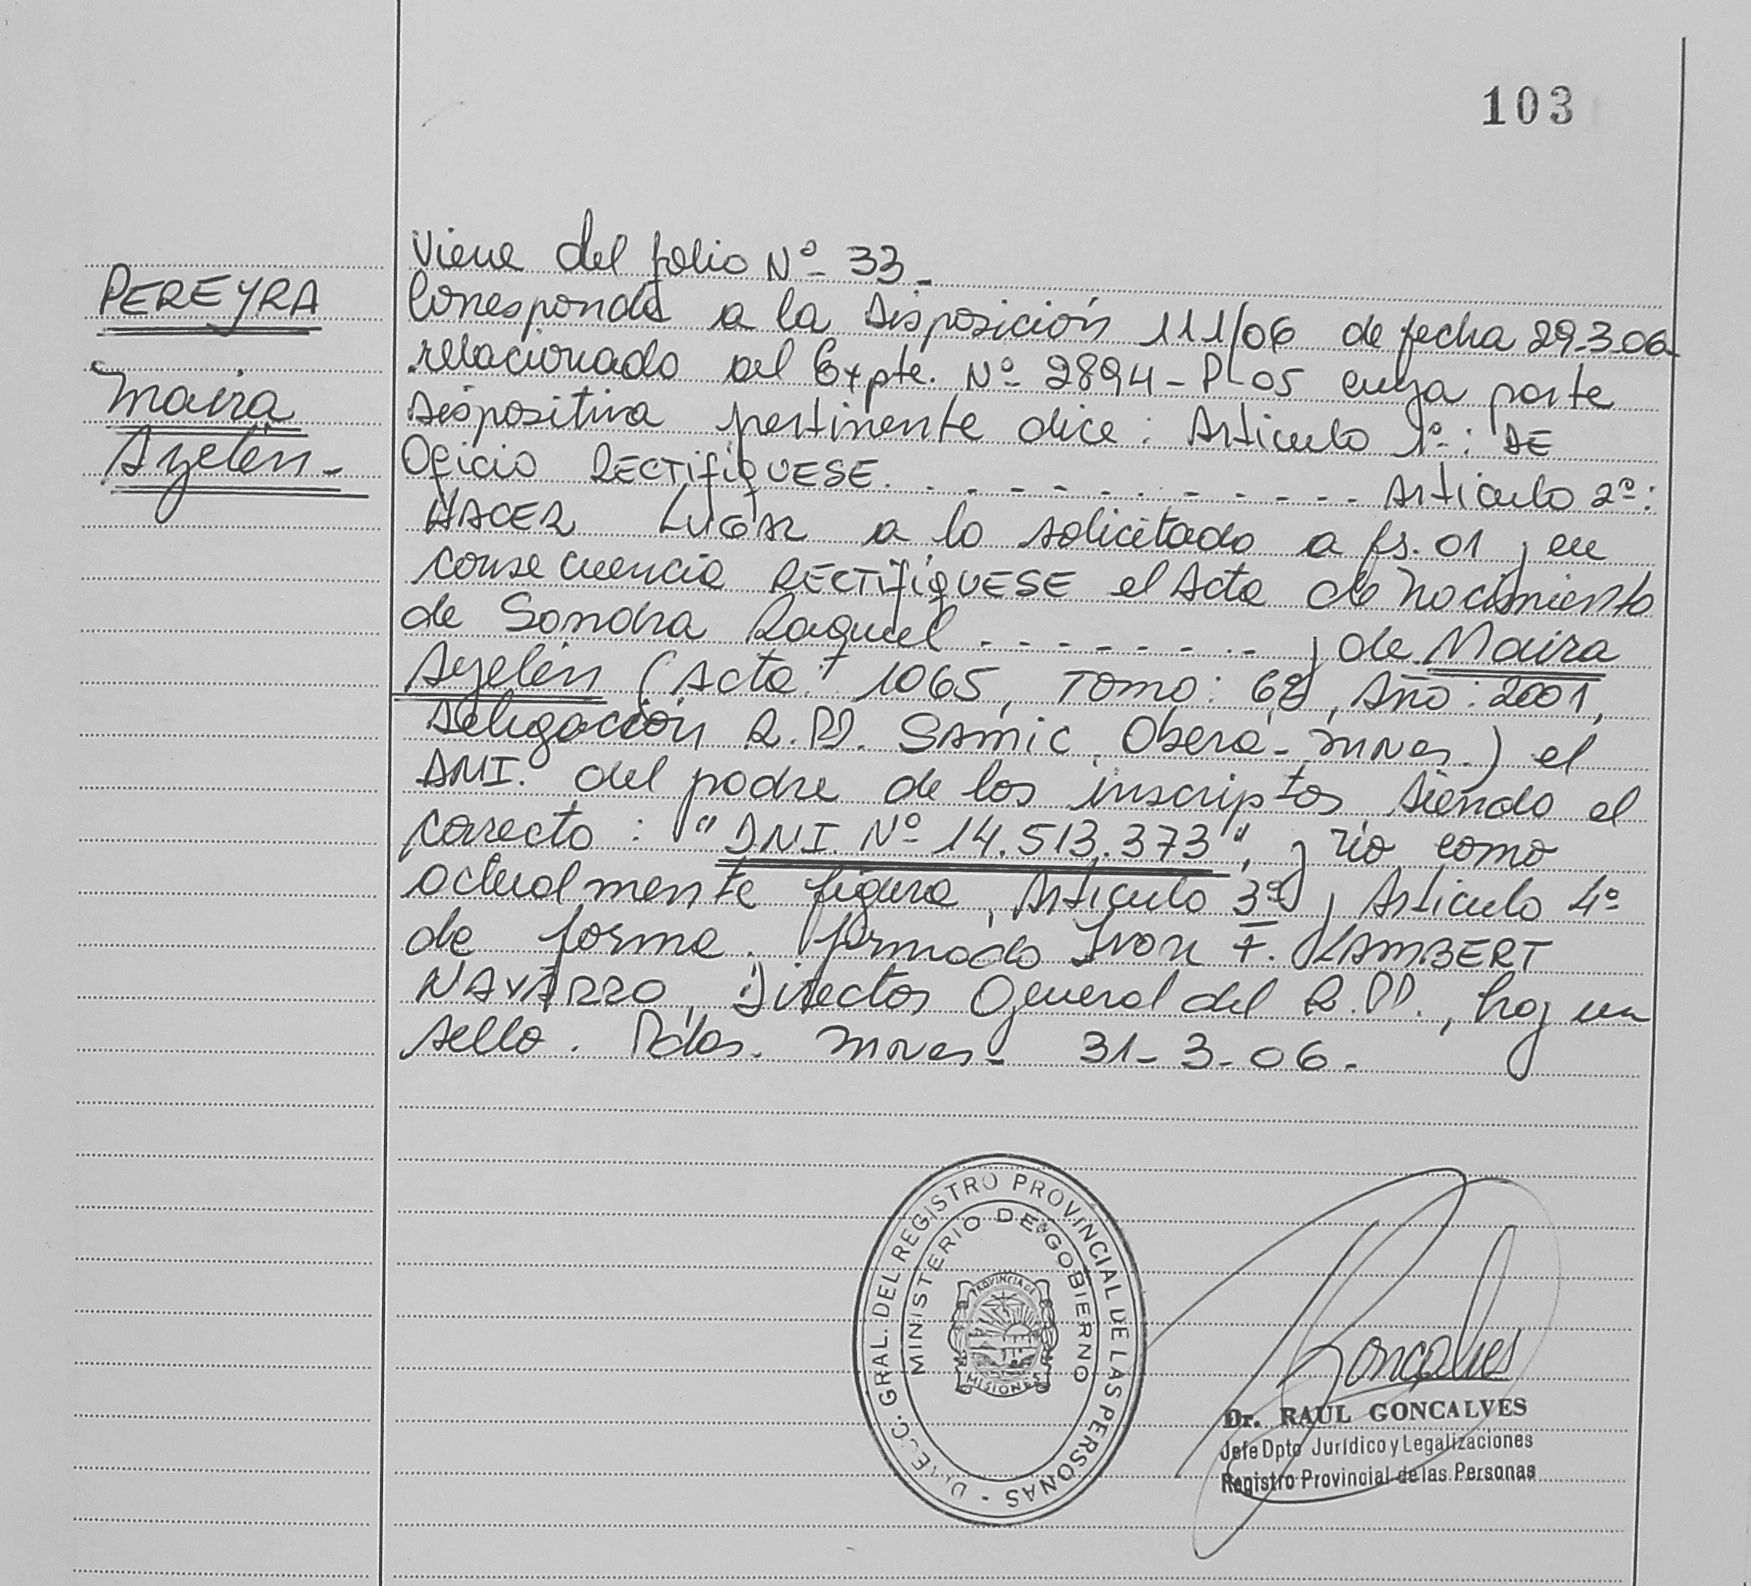 103
PEREYRA
Maira
Ayelén-
Viene del folio Nº- 33-
Corresponde a la Disposición 111/06 de fecha 29-3-06-
relacionado al Expte. Nº- 2894-P-05 cuya parte
dispositiva pertinente dice: Artículo 1º: DE
Oficio RECTIFIQUESE. - - - - - - - - - - - Artículo 2º:
HACER LUGAR a lo solicitado a fs. 01 y en
consecuencia RECTIFIQUESE el Acta de Nacimiento
de Sandra Raquel - - - - - - - - y de Maira
Ayelén (Acta: 1065, Tomo: 6º, Año: 2001,
Delegación R.PP. SAMIC Oberá- Mnes.) el
DNI. del padre de los inscriptos siendo el
correcto: "DNI. Nº 14.513.373", y no como
actualmente figura, Artículo 3º y Artículo 4º
de forma. firmado Ivon F. LAMBERT
NAVARRO, Director General del R.PP., hay un
sello. Pdas. Mnes- 31-3-06-
DIREC. GRAL. DEL REGISTRO PROVINCIAL DE LAS PERSONAS -
MINISTERIO DE GOBIERNO
PROVINCIA DE
MISIONES
Goncalves
Dr. RAUL GONCALVES
Jefe Dpto Jurídico y Legalizaciones
Registro Provincial de las Personas